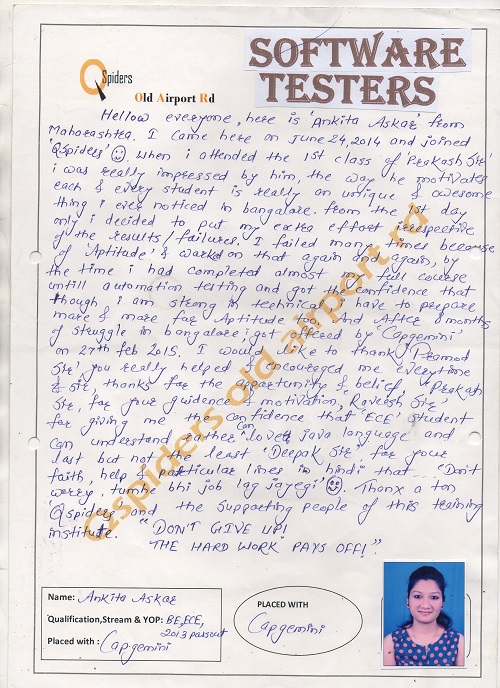 QSpiders
Old Airport Rd
SOFTWARE
TESTERS
Hellow everyone, here is 'Ankita Askar' from
Maharashtra. I came here on June 24, 2014 and joined
'QSpiders' ☺. When i attended the 1st class of Prakash Sir
i was really impressed by him, the way he motivates
each & every student is really an unique & awesome
thing i ever noticed in bangalore. from the 1st day
only i decided to put my extra effort irrespective
of the results/failures. I failed many times because
of 'Aptitude' & worked on that again and again, by
the time i had completed almost my full course
untill automation testing and got the confidence that
though i am strong in technical i have to prepare
more & more for Aptitude too. And After 8 months
of struggle in bangalore i got offered by 'Capgemini'
on 27th feb 2015. I would like to thank, Pramod
Sir, you really helped & encouraged me everytime
& sir, thanks for the opportunity & belief, 'Prakash
Sir, for your guidence & motivation, Raveesh Sir'
for giving me the confidence that 'ECE' student
can understand rather can 'love' java language and
last but not the least 'Deepak Sir' for your
faith, help & particular lines in hindi that "Don't
worry, tumhe bhi job lag jayegi" ☺. Thanx a ton
Qspiders and the supporting people of this training
institute. "DON'T GIVE UP!
THE HARD WORK PAYS OFF!".
Qspiders old airport rd
Name: Ankita Askar
Qualification,Stream & YOP: BE,ECE,
2013 passout
Placed with : Capgemini
PLACED WITH
Capgemini